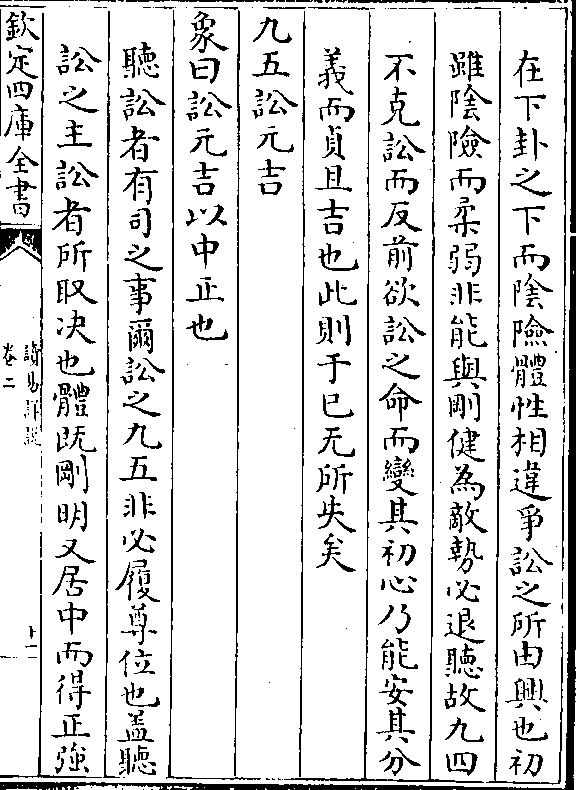 在下卦之下而陰險體性相違爭訟之所由興也初
雖陰險而柔弱非能與剛健為敵勢必退聽故九四
不克訟而反前欲訟之命而變其初心乃能安其分
義而貞且吉也此則于已无所失矣
九五訟元吉
象曰訟元吉以中正也
聽訟者有司之事爾訟之九五非必履尊位也盖聽
訟之主訟者所取决也體既剛明又居中而得正強
欽定四庫全書
卷二
讀易詳説
十一